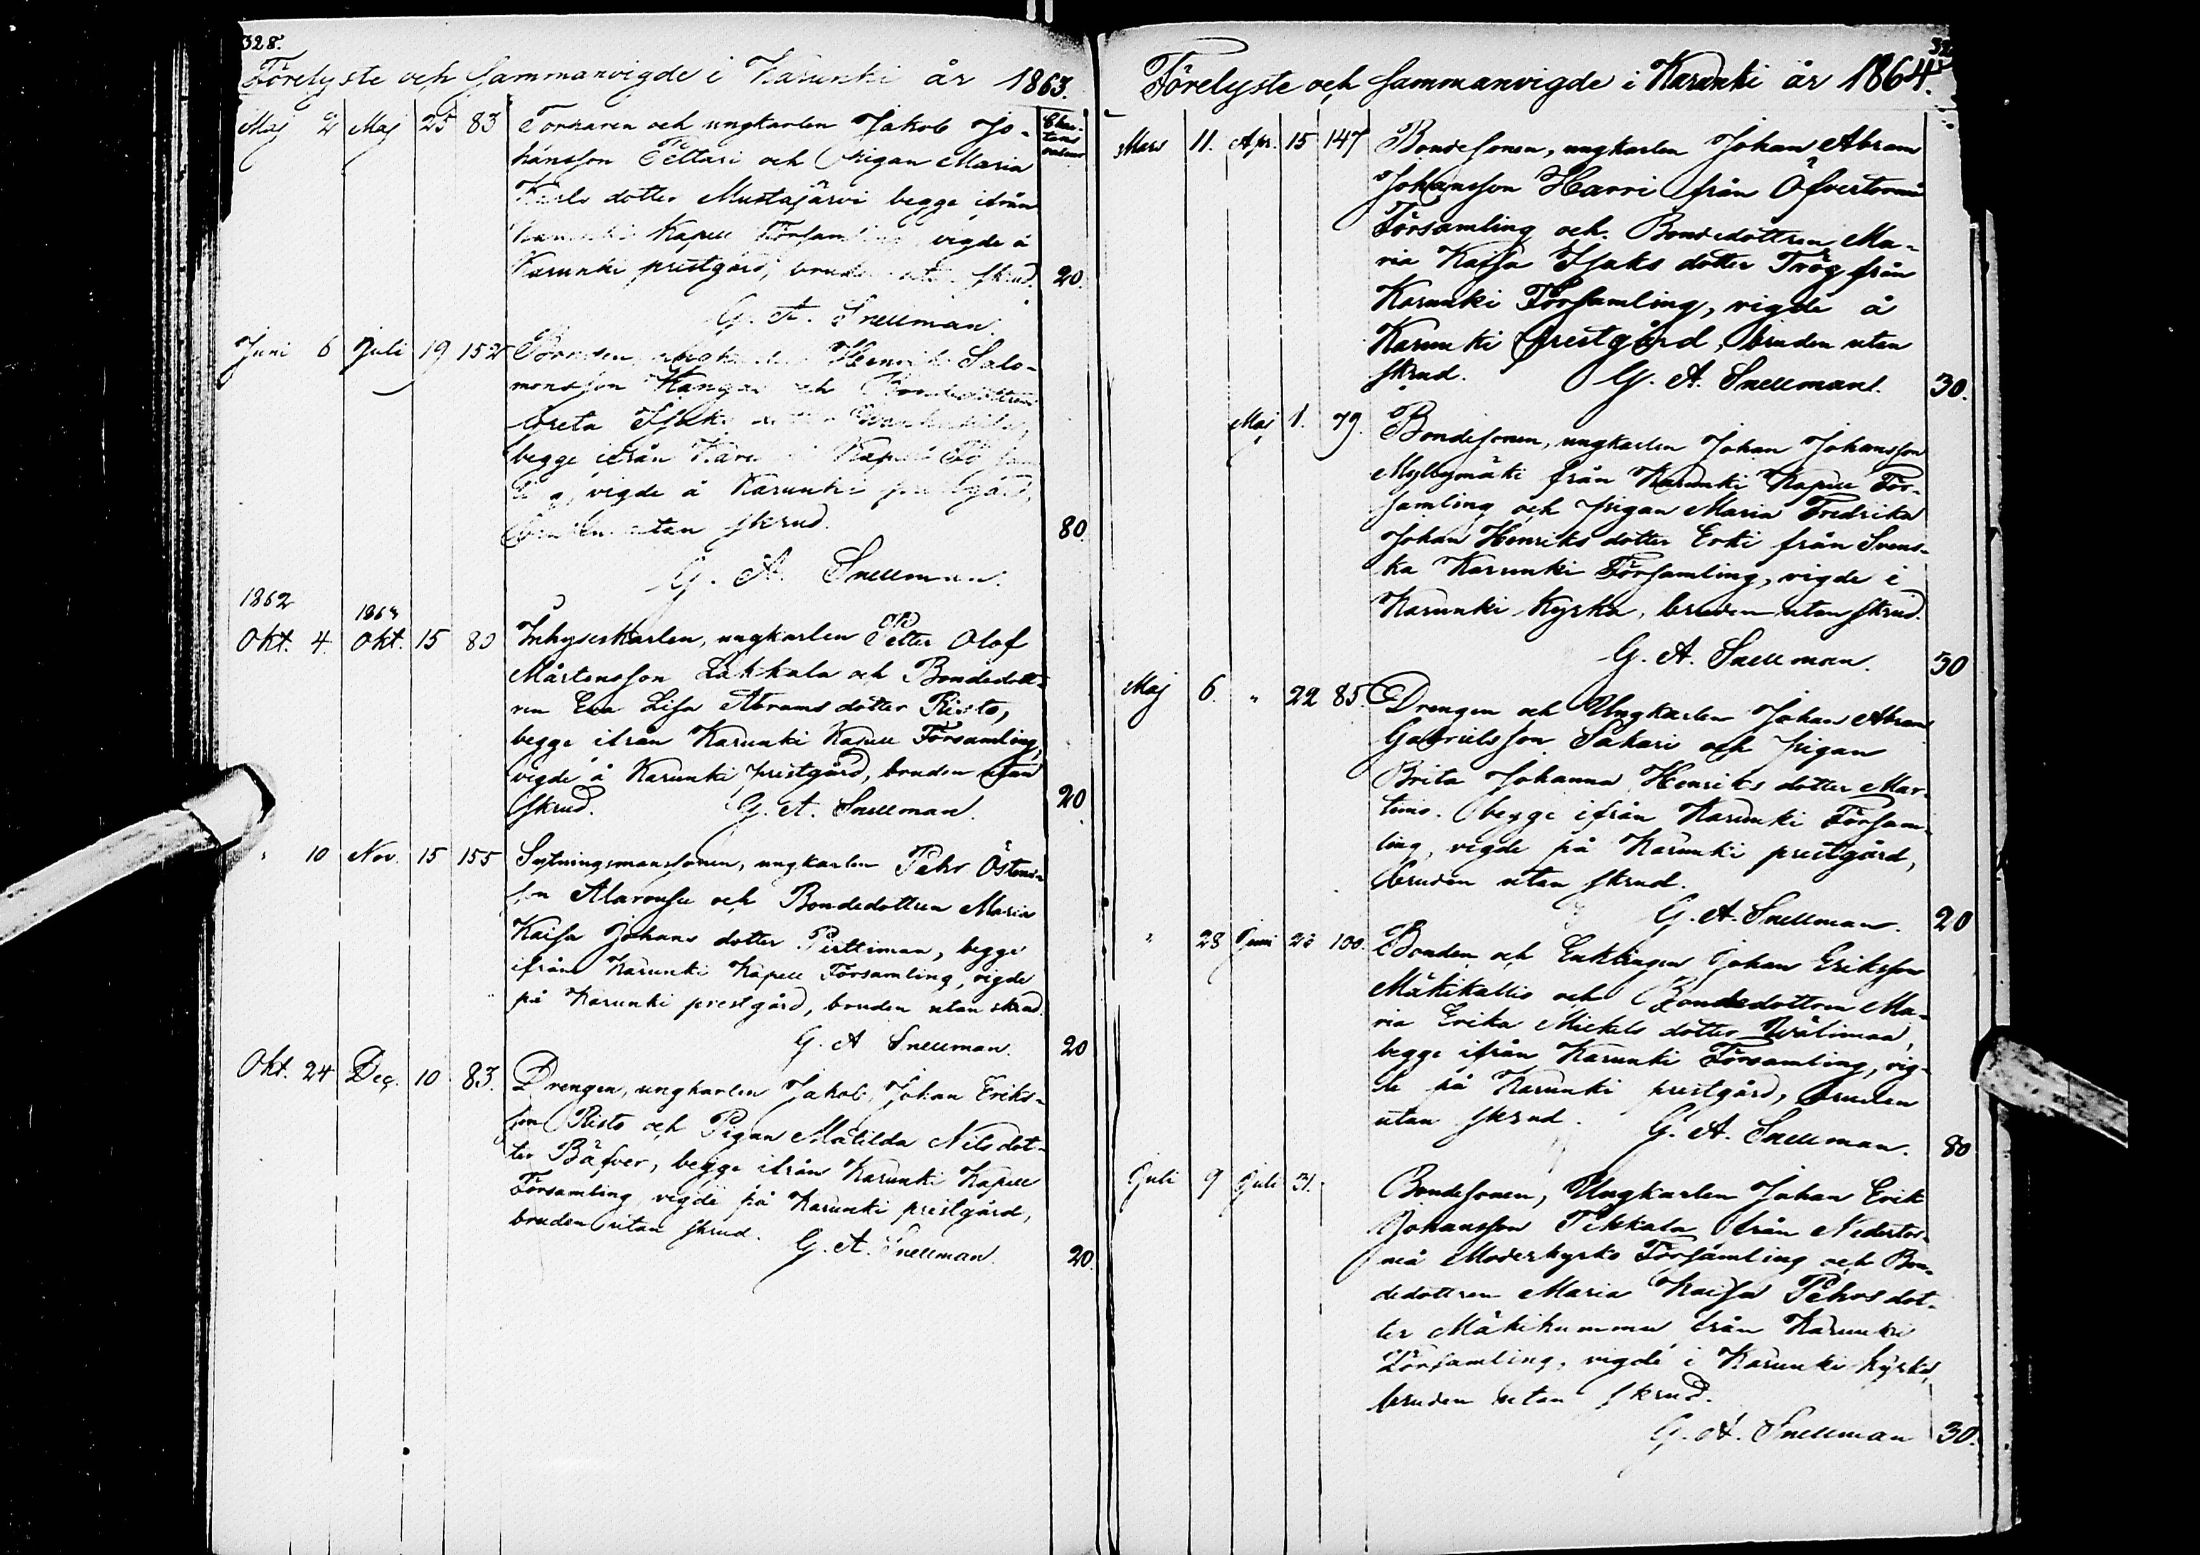 328.
Förelyste och Sammanvigde i Karunki år 1863.
Maj 2 Maj 25 83 Torparen och ungkarlen Jakob Jo-
hansson Pettari och Pigan Maria
Karls dotter Mustajärvi begge ifrån
Karunki Kapell Församling vigde å
Karunki prestgård, bruden utan skrud. 20.
G. A. Snellman.
Juni 6 Juli 19 152 Henrik Salo-
monsson Kangas och Bondedottren
Greta Isaks dotter
begge ifrån Karunki Kapell Försam
ling, vigde å Karunki prestgård,
bruden utan skrud. 80
G. A. Snellman.
1862 1863
Okt. 4. Okt. 15 80 Inhyseskarlen, ungkarlen Petter Olof
Mårtensson Lakkala och Bondedott-
ren Eva Lisa Abrams dotter Risto,
begge ifrån Karunki Kapell Församling,
vigde å Karunki prestgård, bruden utan
skrud. G. A. Snellman. 20
" 10 Nov. 15 155 Sytningsmanssonen, ungkarlen Pehr Östens-
son Alarousu och Bondedottren Maria
Kaisa Johans dotter Perttiman, begge
ifrån Karunki Kapell Församling, vigde
på Karunki prestgård, bruden utan skrud.
G. A Snellman. 20
Okt. 24 Dec. 10 83. Drengen, ungkarlen Jakob Johan Eriks-
son Risto och Pigan Matilda Nils dot-
ter Bäfver, begge ifrån Karunki Kapell
Församling vigde på Karunki prestgård,
bruden utan skrud. G. A. Snellman. 20.
Förelyste och Sammanvigde i Karunki år 1864.
Mars 11. Apr. 15 147 Bondesonen, ungkarlen Johan Abram
Johansson Harri från Öfvertorneå
Församling och Bondedottren Ma-
ria Kajsa Isaks dotter Trög från
Karunki Församling, vigde å
Karunki prestgård, bruden utan
skrud. G. A. Snellman. 30.
Maj 1. 79. Bondesonen, ungkarlen Johan Johansson
Myllymäki från Karunki Kapell För-
samling och pigan Maria Fredrika
Johan Henriks dotter Erki från Svens-
ka Karunki Församling, vigde i
Karunki Kyrka, bruden utan skrud.
G. A. Snellman. 30
Maj 6. " 22 85. Drengen och Ungkarlen Johan Abram
Gabrielsson Sakari och pigan
Brita Johanna Henriks dotter Mar-
timo. begge ifrån Karunki Försam-
ling, vigde på Karunki prestgård,
bruden utan skrud.
G. A. Snellman. 20
" 28 Juni 100. Bonden och Enklingen Johan Eriksson
Mäkikallio och Bondedottren Ma-
ria Erika Mickels dotter Wälimaa,
begge ifrån Karunki Församling, vig-
de på Karunki prestgård, bruden
utan skrud. G. A. Snellman. 80
Juli 9 Juli 31. Bondesonen, Ungkarlen Johan Erik
Johansson Pikkala från Nedertor-
neå Moderkyrko Församling och Bon-
dedottren Maria Kaisa Pehrs dot-
ter Mäkikummu från Karunki
Församling, vigde i Karunki kyrka,
bruden utan skrud.
G. A. Snellman 30.